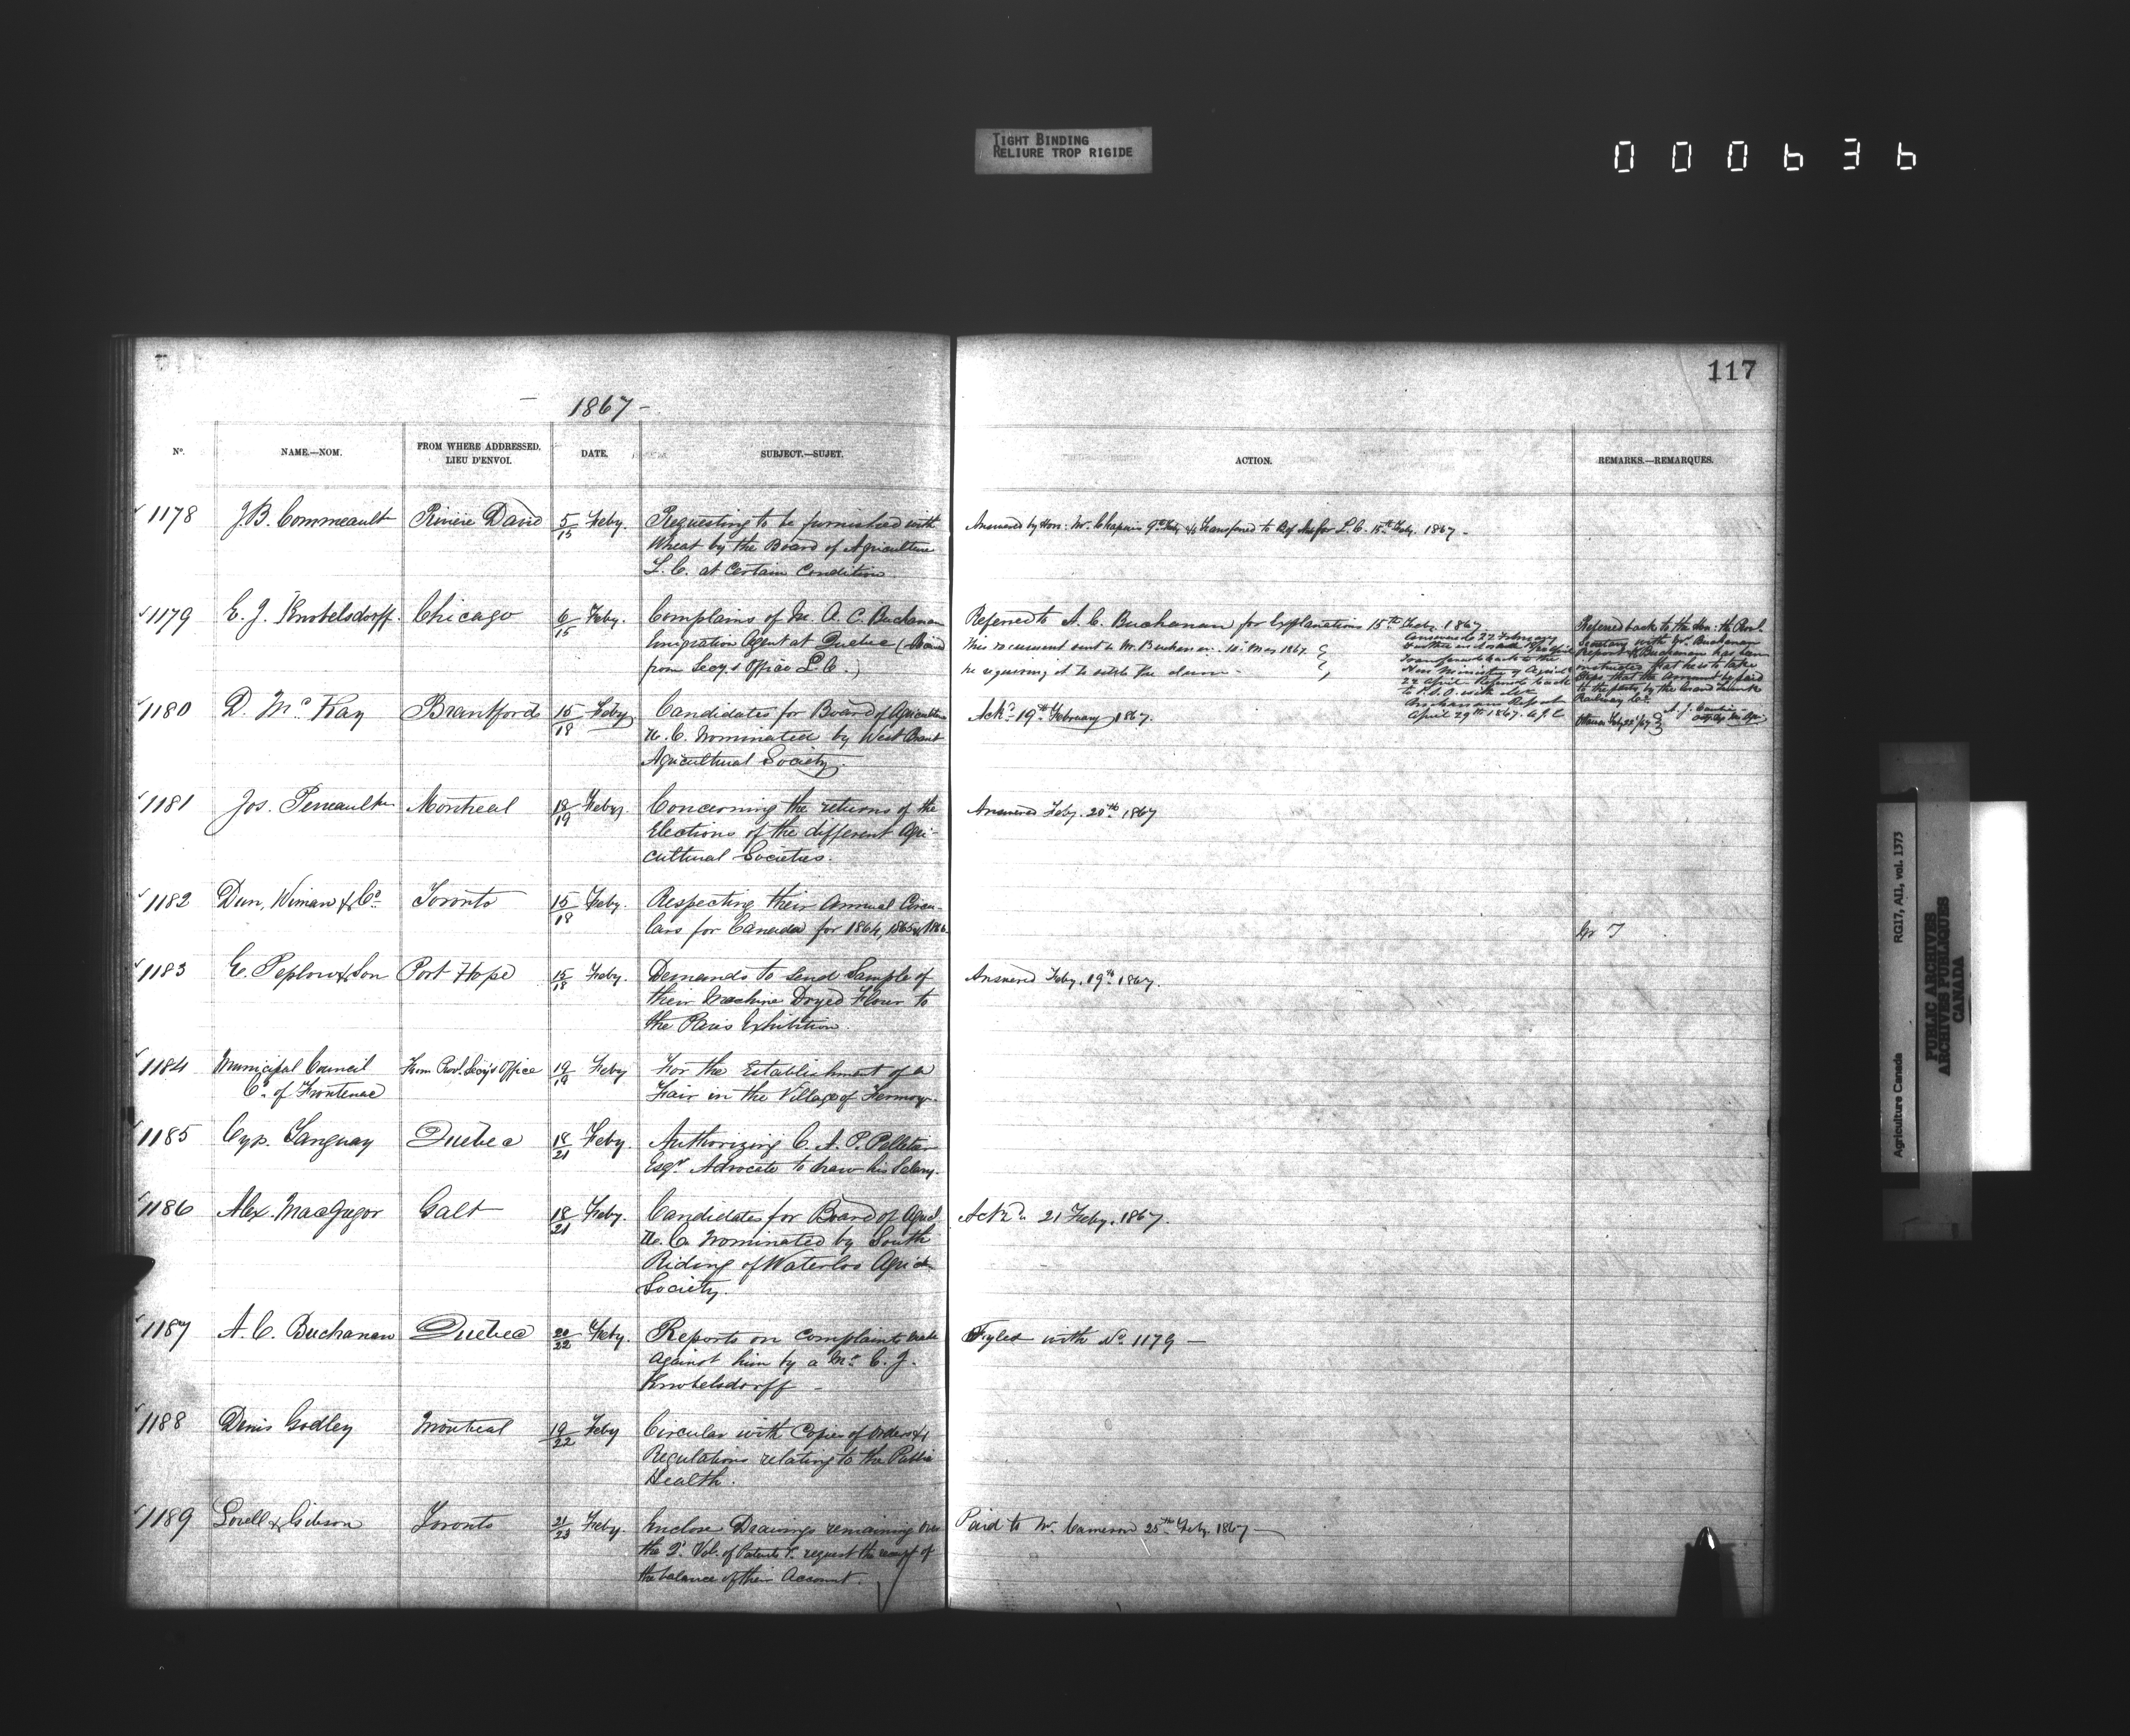 TIGHT BINDING
RELIURE TROP RIGIDE
000636
117
- 1867 -
No. NAME.—NOM. FROM WHERE ADDRESSED. LIEU D'ENVOI. DATE. SUBJECT.—SUJET. ACTION. REMARKS.—REMARQUES.
1178 J.B. Commeault Rivière David 5/15 Feby. Requesting to be furnished with
Wheat by the Board of Agriculture
L. C. at Certain Condition
Answered by Hon: Mr. Chapais 9th Feby & transfered to Bd for L. C. 15th Feby. 1867 -
1179 E. J. Knobelsdorff. Chicago 6/15 Feby. Complains of Mr. A. C. Buchanan
Emigration Agent at Quebec (
from Secy.s Office L. C.)
Referred to A. C. Buchanan for Explanations 15th Feby. 1867
This document sent to Mr. Buchanan 10 May 1867.
he requiring it to settle the claim -
Answered 22 February
Transferred back to the
Hon Ministry of Agricul
22 April Referred back
to P.S.O. with
Buchanans Report
April 29th 1867. A.J.C.
Referred back to the Hon: the Provl.
Secretary with Mr. Buchanan
Report Mr Buchanan has been
instructed that he is to take
steps that the amount be paid
to the party by the Grand Trunk
Railway Co.
Ottawa Feby 22/67
1180 D. McKay Brantford 15/18 Feby Candidates for Board of Agriculture
U. C. Nominated by West Brant
Agricultural Society.
Ackd. 19th February 1867.
1181 Jos. Perreault Montreal 18/19 Feby. Concerning the returns of the
Elections of the different Agri-
cultural Societies.
Answered Feby. 20th 1867
1182 Dun, Wiman & Co. Toronto 15/18 Feby. Respecting their Annual Circu-
lars for Canada for 1864, 1865 & 1866.
1183 E. Peplow & Son Port Hope 15/18 Feby. Demands to send Sample of
their Machine Dryed Flour to
the Paris Exhibition.
Answered Feby. 19th 1867.
1184 Municipal Council From Prov. Secy's Office 19/19 Feby For the Establishment of a
Co. of Frontenac Fair in the Village of Fermoy.
1185 Cyp. Tanguay Quebec 18/21 Feby. Authorizing C. A. P. Pelletier
Esqr. Advocate to draw his Salary.
1186 Alex. MacGregor Galt 18/21 Feby. Candidates for Board of Agricl.
U. C. Nominated by South
Riding of Waterloo Agricl.
Society.
Ackd. 21 Feby. 1867.
1187 A. C. Buchanan Quebec 20/22 Feby. Reports on complaints made
against him by a Mr. E. J.
Knobelsdorff -
Fyled with No. 1179 —
1188 Denis Godley Montreal 19/22 Feby Circular with Copies of Orders &
Regulations relating to the Public
Health.
1189 Lovell & Gibson Toronto 21/23 Feby. Enclose Drawings remaining over
the 2d. Vol. of Patents & request the receipt of
the balance of their Account.
Paid to Mr. Cameron 25th Feby. 1867 —
Agriculture Canada RG17, AI1, vol. 1373
PUBLIC ARCHIVES
ARCHIVES PUBLIQUES
CANADA